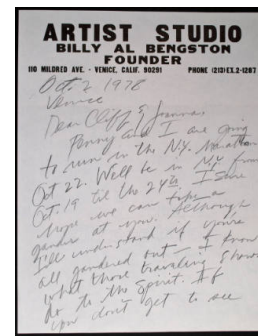 ARTIST STUDIO
BILLY AL BENGSTON
FOUNDER
110 MILDRED AVE. - VENICE, CALIF. 90291 PHONE (213) EX.2-1287
Oct. 2 1978
Venice
Dear Cliff &
Penny and I are going
to run in the N.Y. Marathon
Oct 22. Well be in N.Y. from
Oct. 19 til the 24th. I sure
hope we can take a
gander at you. Although
I'll understand if you're
all gandered out — I know
what those traveling shows
do to the spirit. If
you don't get to see